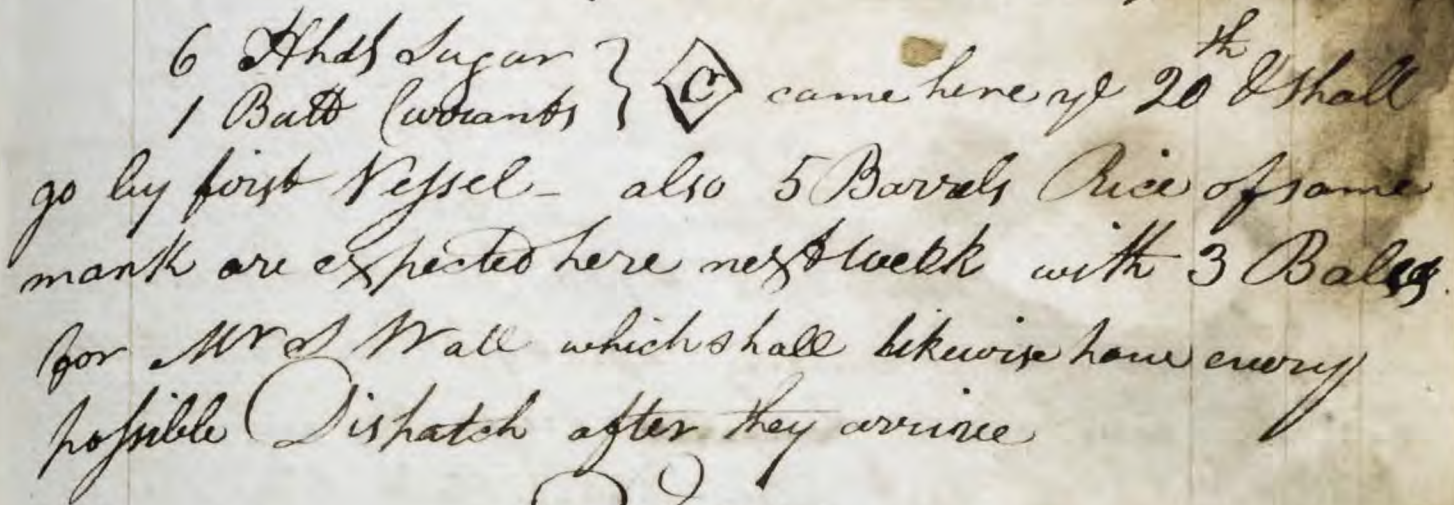 6 Hhds Sugar } C came here ye 20th & shall
1 Butt Currants
go by first Vessel - also 5 Barrels Rice of same
mark are expected here next week with 3 Bales
for Mr J Wall which shall likewise have every
possible Dispatch after they arrive